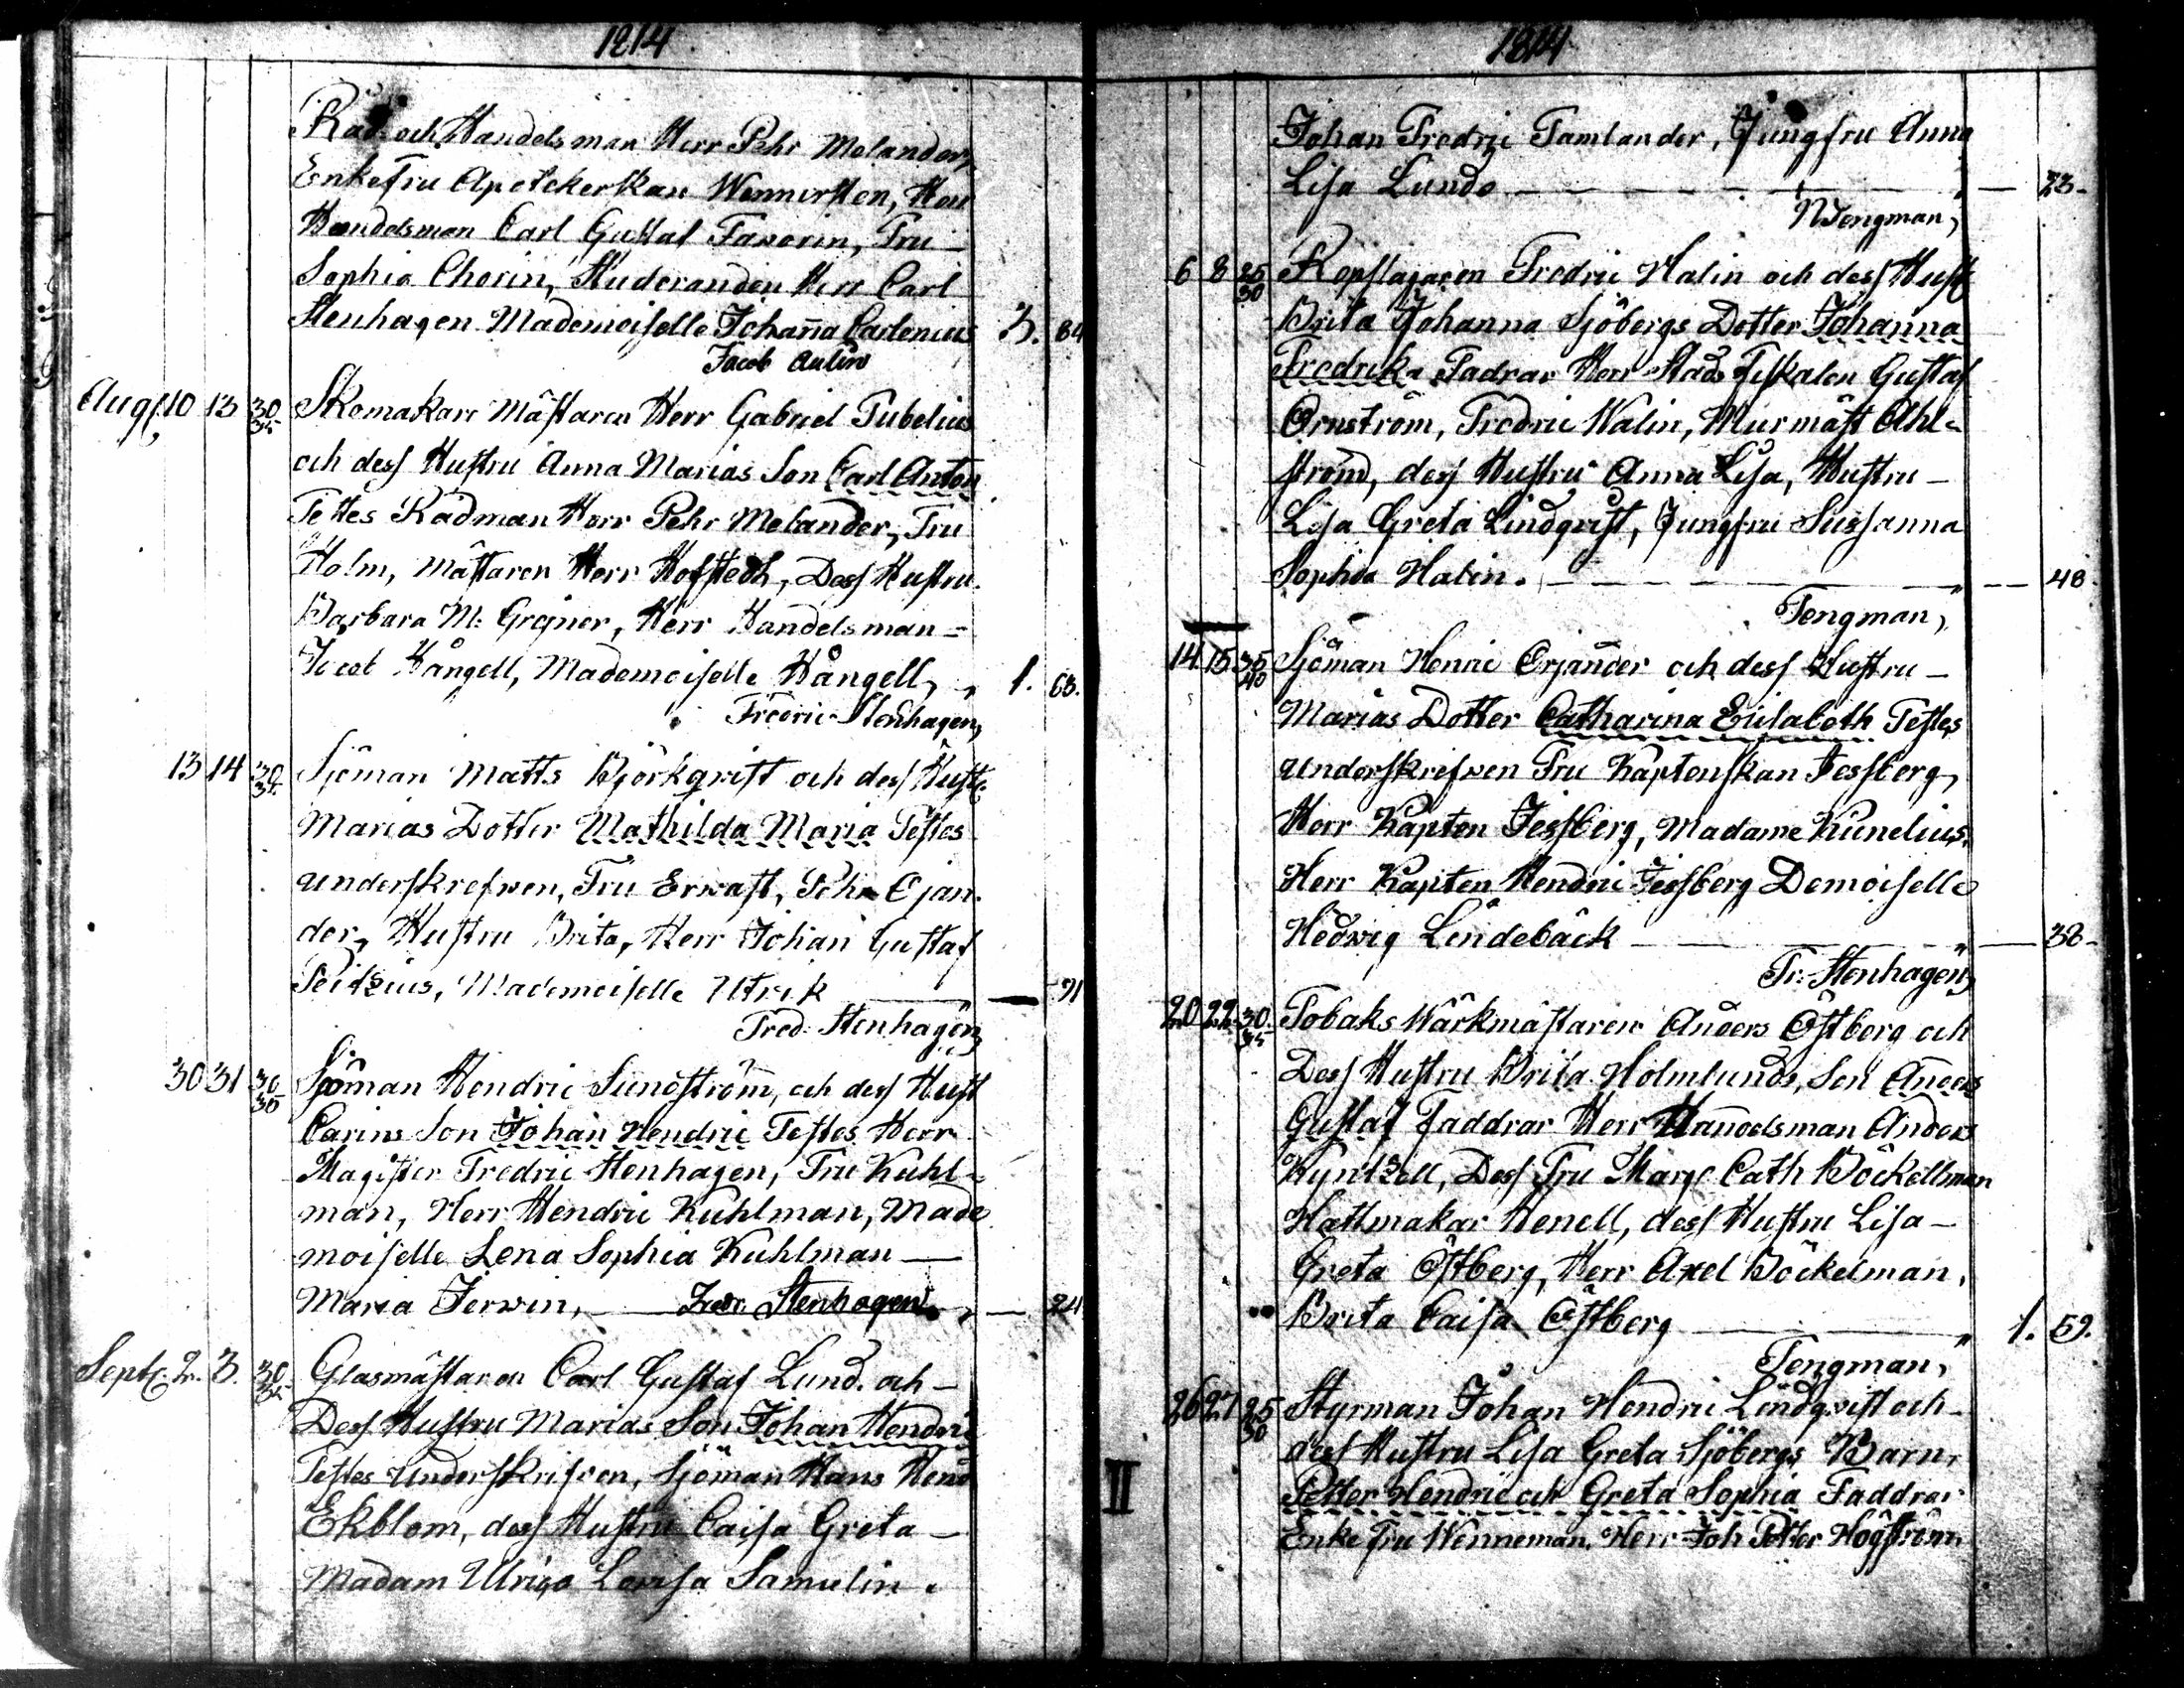 1814
Råd och Handelsman Herr Pehr Melander,
Enkefru Apotekerskan Wennersten, Herr
Handelsman Carl Gustaf Favorin, Fru
Sophia Chorin, Studeranden Herr Carl
Stenhagen Mademoiselle Johanna Carlenius 3. 64
Jacob Aulin
Aug 10 13 30 35 Skomakare Mästaren Herr Gabriel Tubelius
och dess Hustru Anna Marias Son Carl Anton
Testes Rådman Herr Pehr Melander, Fru
Holm, Mästaren Herr Hofstedt, Dess Hustru
Barbara M: Gregner, Herr Handelsman
Hångell, Mademoiselle Hångell, 1. 63.
Fredric Stenhagen
13 14 30 Sjöman Matts Björkqwist och dess Hust.
Marias Dotter Mathilda Maria Testes
Underskrefwen, Fru Erwast, Pehr Ojan-
der, Hustru Brita, Herr Johan Gustaf
Peitzius, Mademoiselle Utrik — 91
Fred: Stenhagen
30 31 30 Sjöman Hendric Sundström, och dess Hust
Carins Son Johan Hendric Testes Herr
Magister Fredric Stenhagen, Fru Kuhl-
man, Herr Hendric Kuhlman, Made
moiselle Lena Sophia Kuhlman —
Maria Jerwin, — Fredr Stenhagen — 24
Sept. 2. 3. 30 35 Glasmästaren Carl Gustaf Lund. och
Dess Hustru Marias Son Johan Hendric
Testes Underskrifven, Sjöman Hans Hend
Ekblom, dess Hustru Caisa Greta
Madam Ulrica Lovisa Samulin.
1814
Johan Fredric Tamlander, Jungfru Anna
Lisa Lunds — 23-
NTengman,
6 8 25 30 Kopslagaren Fredric Halin och dess Hust
Brita Johanna Sjöbergs Dotter Johanna
Fredrika Fadrar Herr Stads Fiskalen Gustaf
Ornström, Fredric Walin, Murmäst Ahl-
ström, dess Hustru Anna Lisa, Hustru
Lisa Greta Lindqvist, Jungfru Sussanna
Sophia Halin. — 48.
Tengman,
14 15 35 40 Sjöman Henric Orjander och dess Hustru
Marias Dotter Catharina Elisabeth Testes
underskrefwen Fru Kaptenskan Jessberg,
Herr Kapten Jessberg, Madame Kunelius,
Herr Kapten Hendric Jessberg Demoiselle
Hedvig Lindebäck — 38-
Fr: Stenhagen
20 22 30 35 Tobaks Wärkmästaren Anders Östberg och
Dess Hustru Brita Holmlunds, Son Anders
Gustaf Faddrar Herr Handelsman Anders
Kyntzell, Dess Fru Marg Cath Böckellman
Hattmakar Henell, dess Hustru Lisa
Greta Östberg, Herr Axel Böckelman,
Brita Caisa Östberg — 1. 59.
Tengman,
26 27 25 30 Styrman Johan Hendric Lindqvist och
dess Hustru Lisa Greta Sjöbergs Barn,
II Petter Hendric och Greta Sophia Faddrar
Enke fru Wenneman, Herr Joh Petter Högström